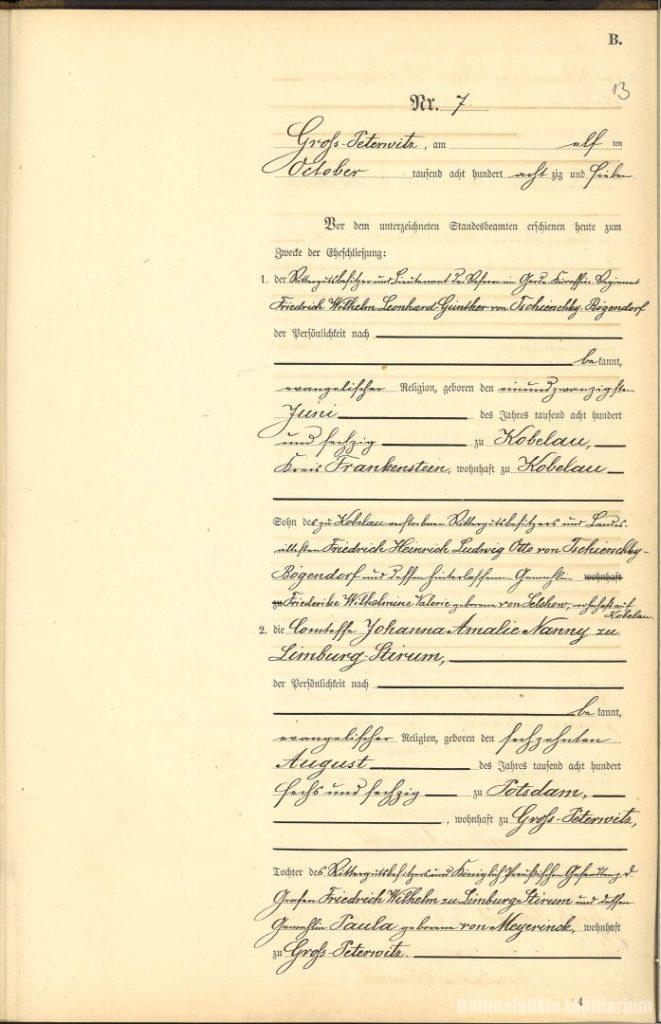 B.
13
Nr. 7
Gross-Peterwitz, am elf ten
October tausend acht hundert acht zig und sieben.
Vor dem unterzeichneten Standesbeamten erschienen heute zum
Zwecke der Eheschließung:
1. der Rittergutsbesitzer und Lieutenant der Reserve im Garde Kürassier Regiment
Friedrich Wilhelm Leonhard Günther von Tschierschky-Bögendorf
der Persönlichkeit nach
be kannt,
evangelischer Religion, geboren den einundzwanzigsten
Juni des Jahres tausend acht hundert
und sechzig zu Kobelau,
Kreis Frankenstein, wohnhaft zu Kobelau
Sohn des zu Kobelau verstorbenen Rittergutsbesitzers und Landes-
ältesten Friedrich Heinrich Ludwig Otto von Tschierschky-
Bögendorf und dessen hinterlassenen Gemahlin wohnhaft
zu Friederike Wilhelmine Valerie geborene von Selchow, wohnhaft auf
Kobelau.
2. die Comtesse Johanna Amalie Nanny zu
Limburg-Stirum,
der Persönlichkeit nach
be kannt,
evangelischer Religion, geboren den sechzehnten
August des Jahres tausend acht hundert
sechs und sechzig zu Potsdam,
, wohnhaft zu Gross-Peterwitz,
Tochter des Rittergutsbesitzers und Königlich Preußischen Gesandten z. D.
Grafen Friedrich Wilhelm zu Limburg-Stirum und dessen
Gemahlin Paula geborene von Meyerinck, wohnhaft
zu Gross-Peterwitz.
4
Dolnośląskie lapidarium